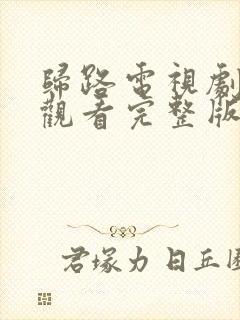 歸路電視劇
觀看完整版
君塚力 日丘園